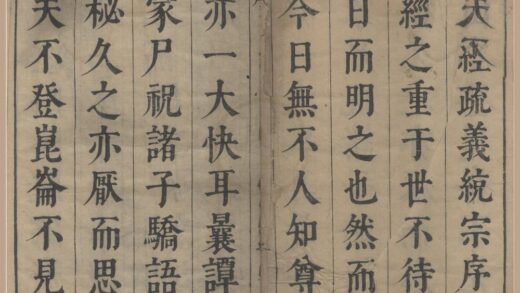 天經疏義統宗序
經之重于世不待
日而明之也然而
今日無不人知尊
亦一大快耳曩譚
家尸祝諸子驕語
秘久之亦厭而思
夫不登崑崙不見